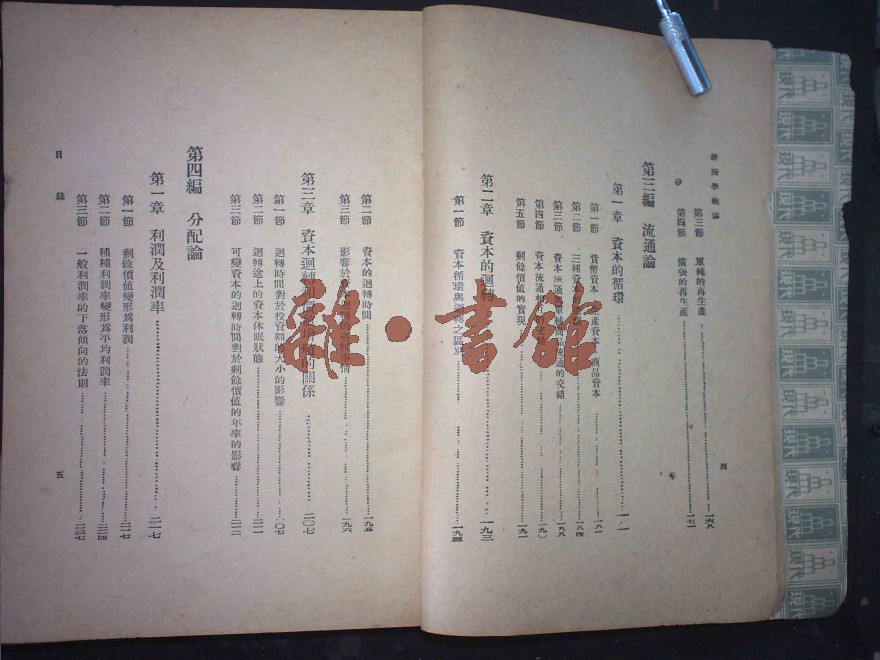 經濟學概論
第三節 單純的再生產 一六八
第四節 擴張的再生產 一七一
第三編 流通論
第一章 資本的循環
第一節 貨幣資本 生產資本 商品資本 一八一
第二節 三種資 一八四
第三節 資本流通 單純商品流通的交錯 一八八
第四節 資本流通 一九〇
第五節 剩餘價值的實現 一九一
第二章 資本的迴轉 一九三
第一節 資本循環與迴轉之區別 一九三
四
第二節 資本的迴轉時間 一九五
第三節 影響於 一九六
第三章 資本迴轉 的關係 二〇七
第一節 迴轉時間對於投資額的大小的影響 二〇七
第二節 迴轉途上的資本休眠狀態 二一一
第三節 可變資本的迴轉時間對於剩餘價值的年率的影響 二一二
第四編 分配論
第一章 利潤及利潤率 二一七
第一節 剩餘價值變形爲利潤 二一七
第二節 種種利潤率變形爲平均利潤率 二二四
第三節 一般利潤率的下落傾向的法則 二三七
目錄
五
雜·書館
現代